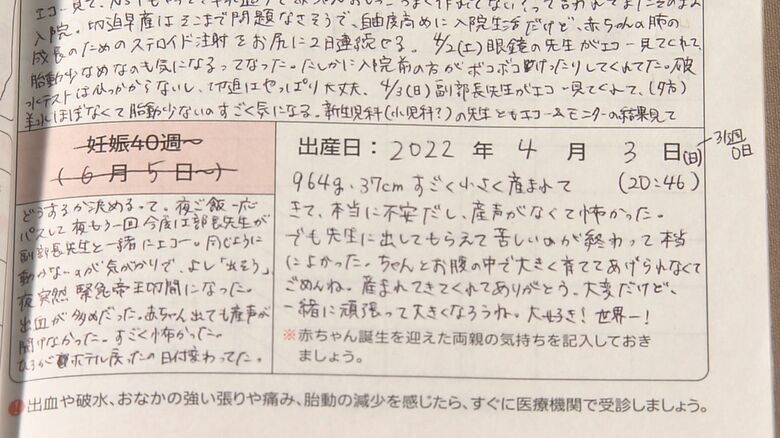 入院。切迫早産はそこまで問題なさそうで、自由度高めに入院生活だけど、赤ちゃんの肺の
成長のためのステロイド注射をお尻に2日連続せる。4/2(土)眼鏡の先生がエコー見てくれて、
胎動少なめなのも気になるってなった。たしかに入院前の方がボコボコ動いたりしてくれてた。破
水テストはひっかからないし、切迫はやっぱり大丈夫、4/3(日)副部長先生がエコー見てくれて、(夕方)
羊水ほぼなくて胎動少ないのすごく気になる。新生児科(小児科?)の先生ともエコー&モニターの結果見て
妊娠40週〜
(6月5日〜)
どうするか決めるって。夜ご飯一応
パスして夜もう一回今度は部長先生が
副部長先生と一緒にエコー。同じように
動かないのが気がかりで、よし「出そう」
夜突然緊急帝王切開になった。
出血が多めだった。赤ちゃん出ても産声が
聞けなかった。すごく怖かった。
ホテル戻ったの日付変わってた。
出産日:2022年4月3日(日)
31週
0日
964g、37cmすごく小さく産まれて (20:46)
きて、本当に不安だし、産声がなくて怖かった。
でも先生に出してもらえて苦しいのが終わって本当
によかった。ちゃんとお腹の中で大きく育ててあげられなくて
ごめんね。産まれてきてくれてありがとう。大変だけど、
一緒に頑張って大きくなろうね。大好き!世界一!
※赤ちゃん誕生を迎えた両親の気持ちを記入しておき
ましょう。
出血や破水、おなかの強い張りや痛み、胎動の減少を感じたら、すぐに医療機関で受診しましょう。